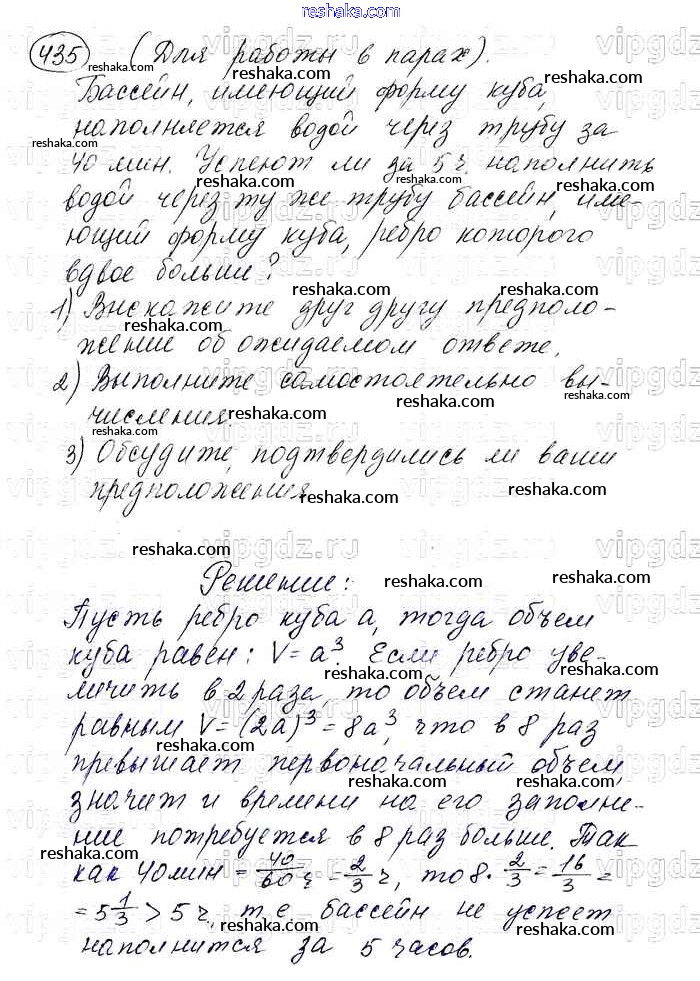 reshaka.com
435 (Для работы в парах).
Бассейн, имеющий форму куба,
наполняется водой через трубу за
40 мин. Успеют ли за 5 ч. наполнить
водой через ту же трубу бассейн, име-
ющий форму куба, ребро которого
вдвое больше?
1) Выскажите друг другу предполо-
жение об ожидаемом ответе.
2) Выполните самостоятельно вы-
числения.
3) Обсудите, подтвердились ли ваши
предположения
Решение:
Пусть ребро куба a, тогда объем
куба равен: V = a³. Если ребро уве-
личить в 2 раза, то объем станет
равным V = (2a)³ = 8a³, что в 8 раз
превышает первоначальный объем,
значит и времени на его заполне-
ние потребуется в 8 раз больше. Так
как 40 мин = 40/60 ч = 2/3 ч, то 8 · 2/3 = 16/3 =
= 5 1/3 > 5 ч, т.е. бассейн не успеет
наполнится за 5 часов.